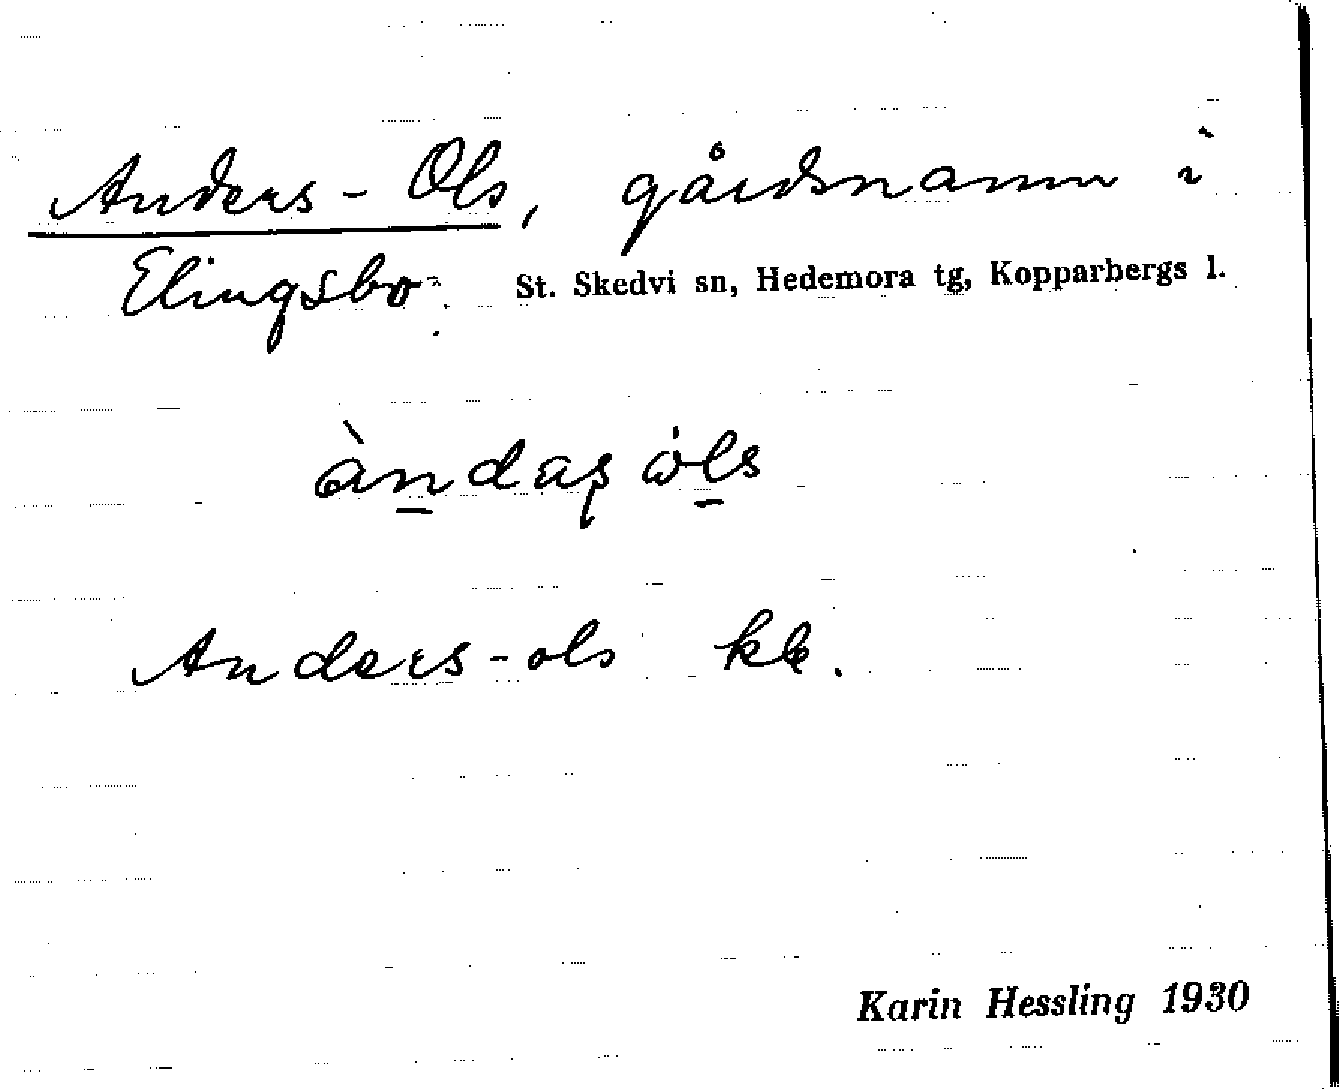 Anders-Ols, gårdsnamn i
Elingsbo. St. Skedvi sn, Hedemora tg, Kopparbergs l.
àn̲daʂ ɷ̇l̲s
Anders-ols kb.
Karin Hessling 1930